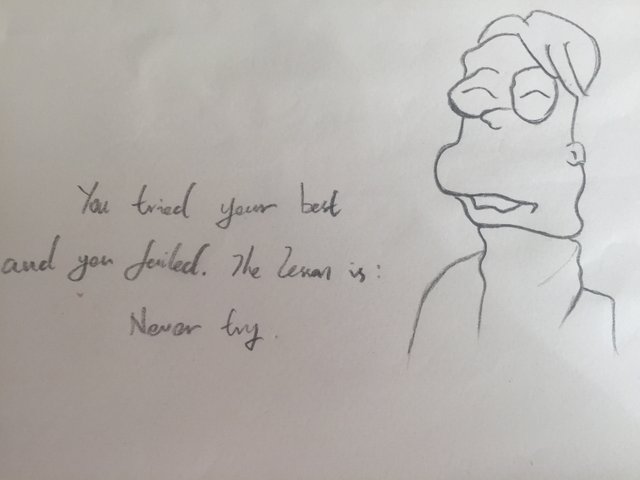 You tried your best
and you failed. The lesson is:
Never try.